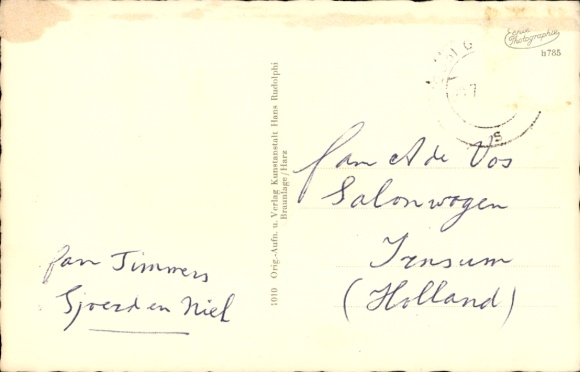 Echte
Photographie
h785
1010 Orig.-Aufn. u. Verlag Kunstanstalt Hans Rudolphi
Braunlage/Harz
Fam A de Vos
Salonwagen
Irnsum
(Holland)
Fam Timmers
Sjoerd en Niel